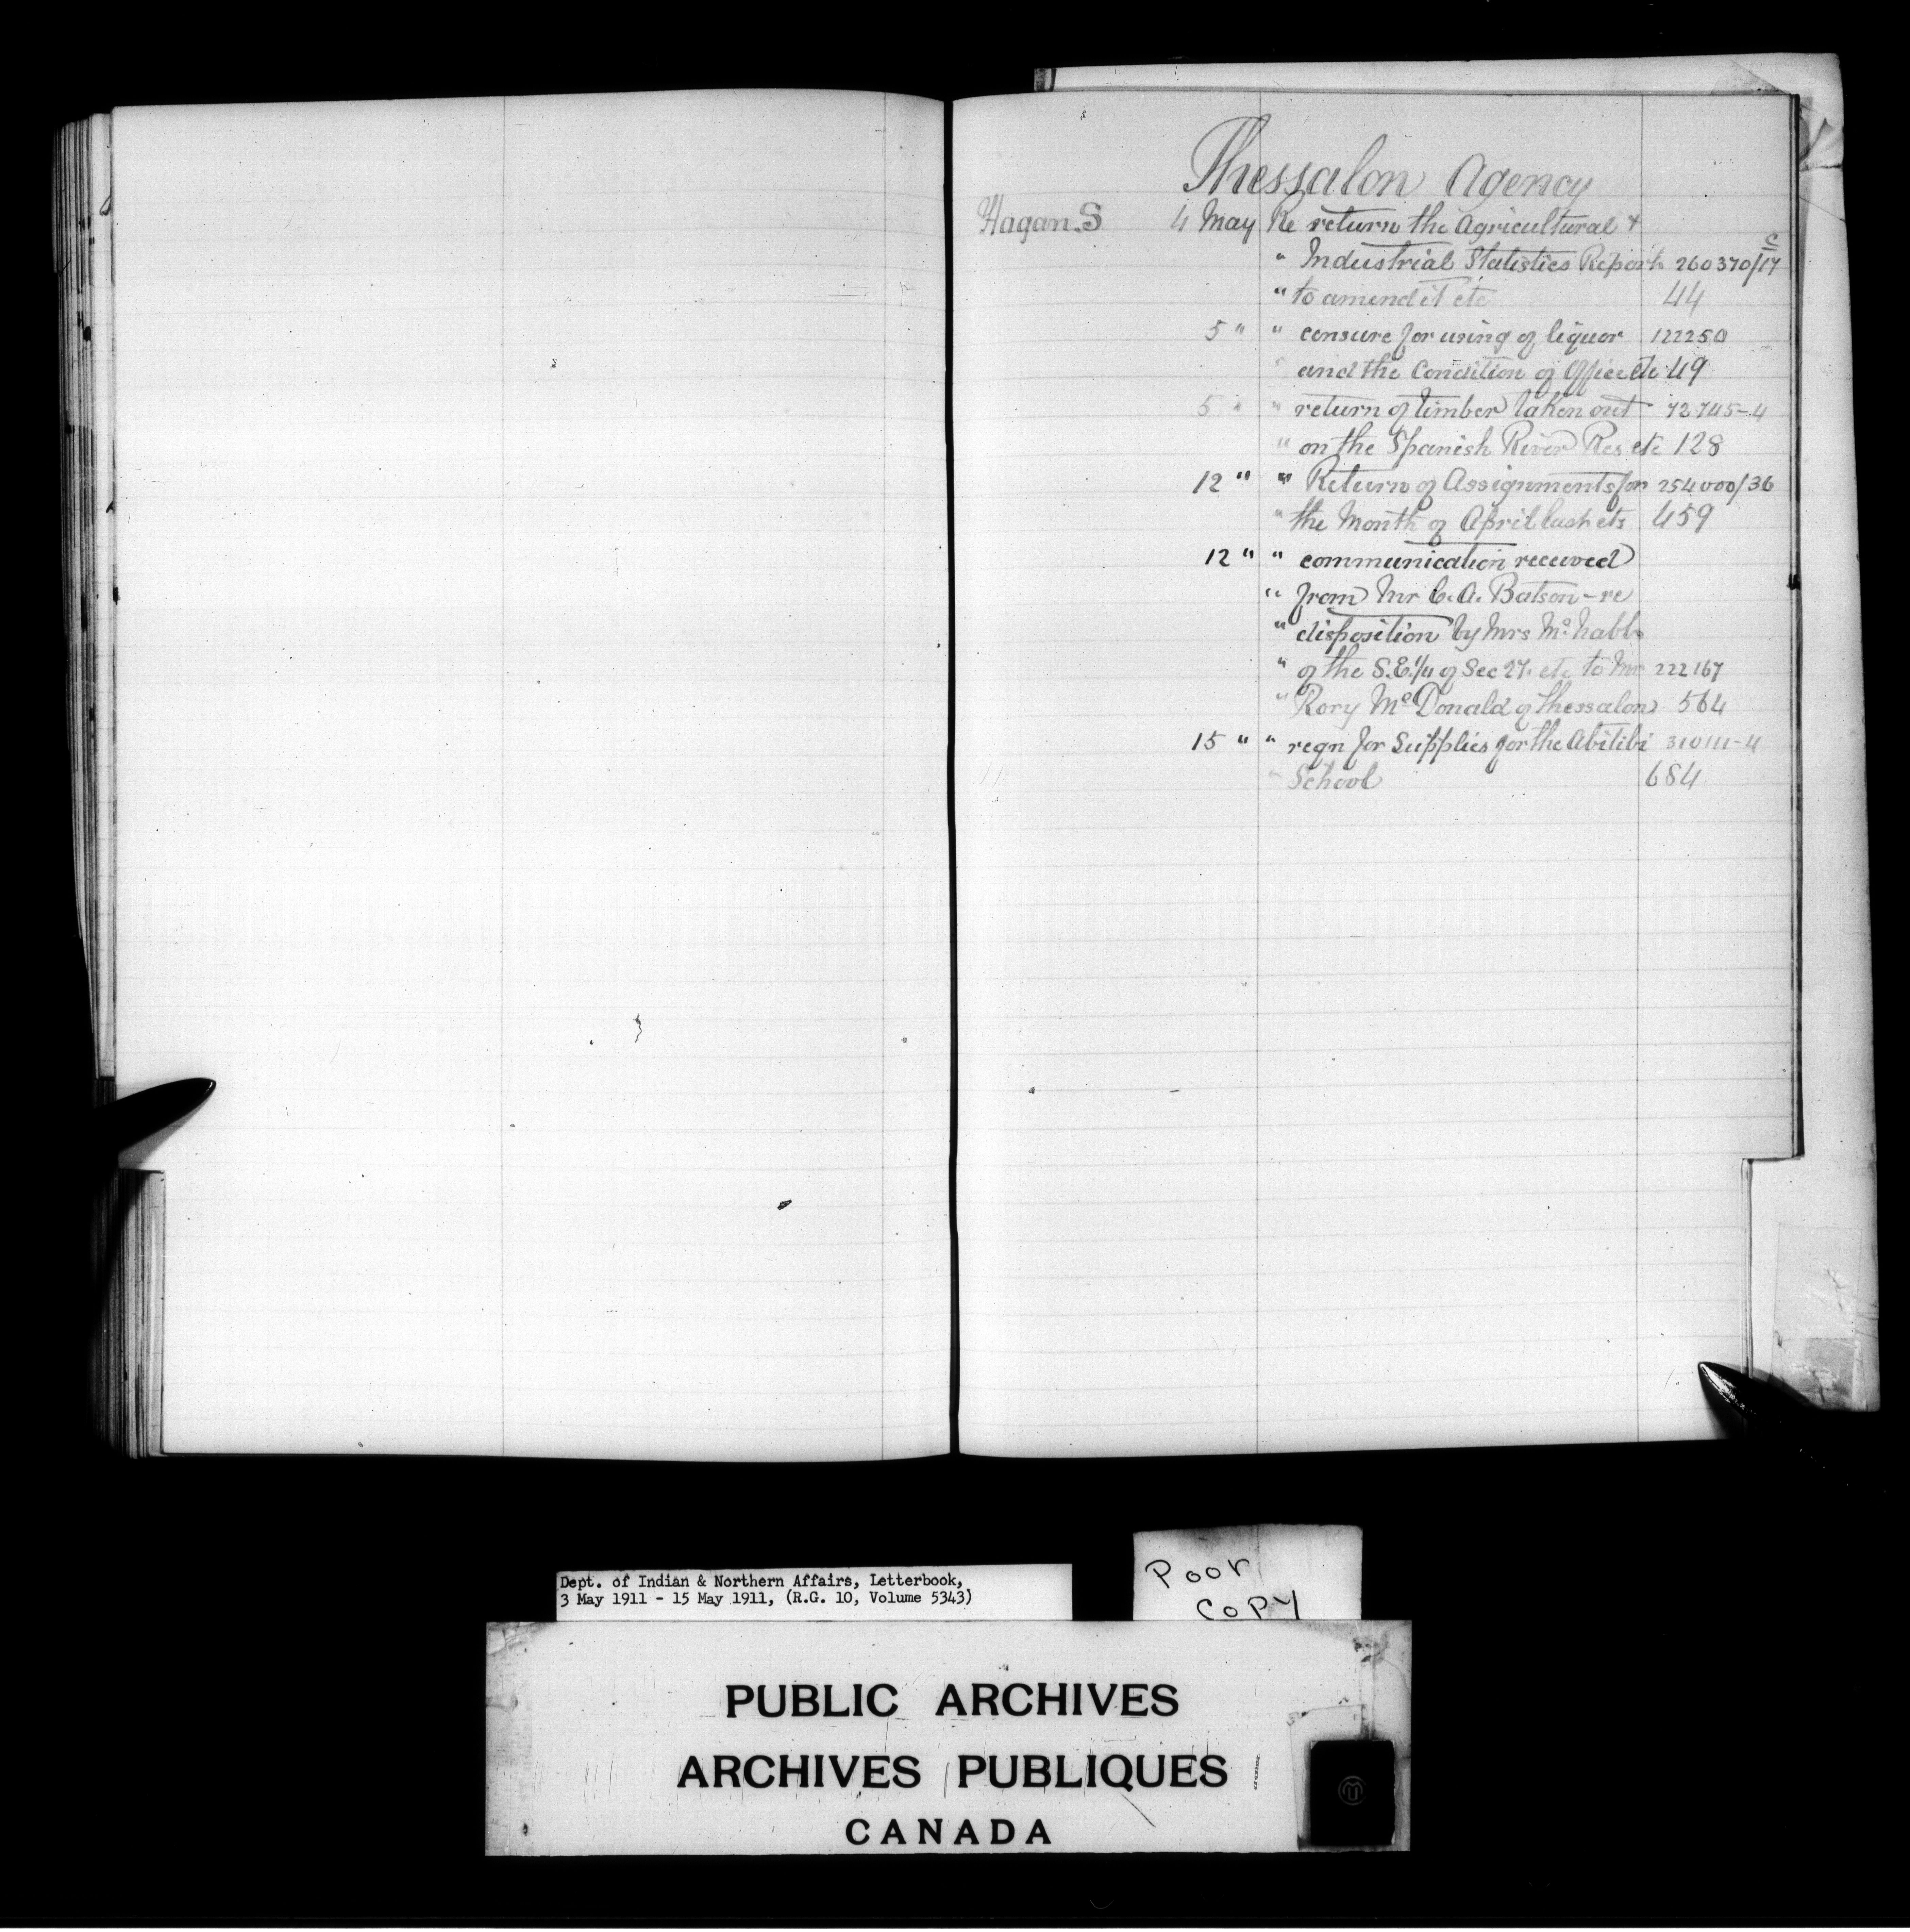 Thessalon Agency
Hagan. S 4 May Re return the Agricultural &
" Industrial Statistics Report 260370/17 C
" to amend it etc 44
5 " " censure for using of liquor 122250
" and the Condition of Office etc 49
5 " " return of timber taken out 72745-4
" on the Spanish River Res etc 128
12 " " Return of Assignments for 254000/36
" the Month of April last etc 459
12 " " communication received
" from Mr C. A. Batson - re
" disposition by Mrs McNabb
" of the S.E. 1/4 of Sec 27. etc to Mr 222167
" Rory McDonald of Thessalon 564
15 " " reqn for Supplies for the Abitibi 310111-4
" School 684
Dept. of Indian & Northern Affairs, Letterbook,
3 May 1911 - 15 May 1911, (R.G. 10, Volume 5343)
Poor
Copy
PUBLIC ARCHIVES
ARCHIVES PUBLIQUES
CANADA